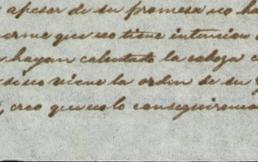 apesar de su promesa no ha
erme que no tiene intencion
hayan calentado la cabeza
deseo viene la orden de su
, creo que no lo conseguiremos